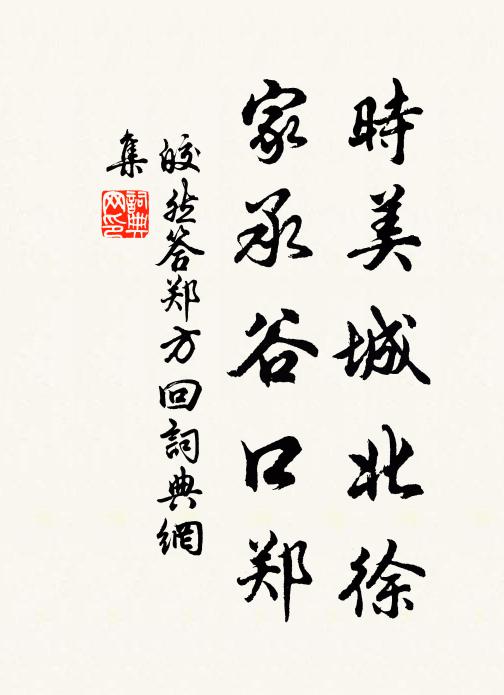 時美城北徐
家承谷口郑
皎然答郑方回詞典網
集
詞典
网印